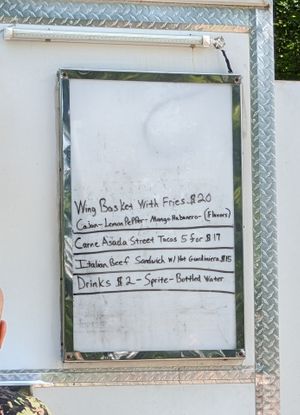 Wing Basket With Fries $20
Cajun-Lemon Pepper-Mango Habanero-(Flavors)
Carne Asada Street Tacos 5 for $17
Italian Beef Sandwich w/ Hot Guardiniera $15
Drinks $2-Sprite-Bottled Water